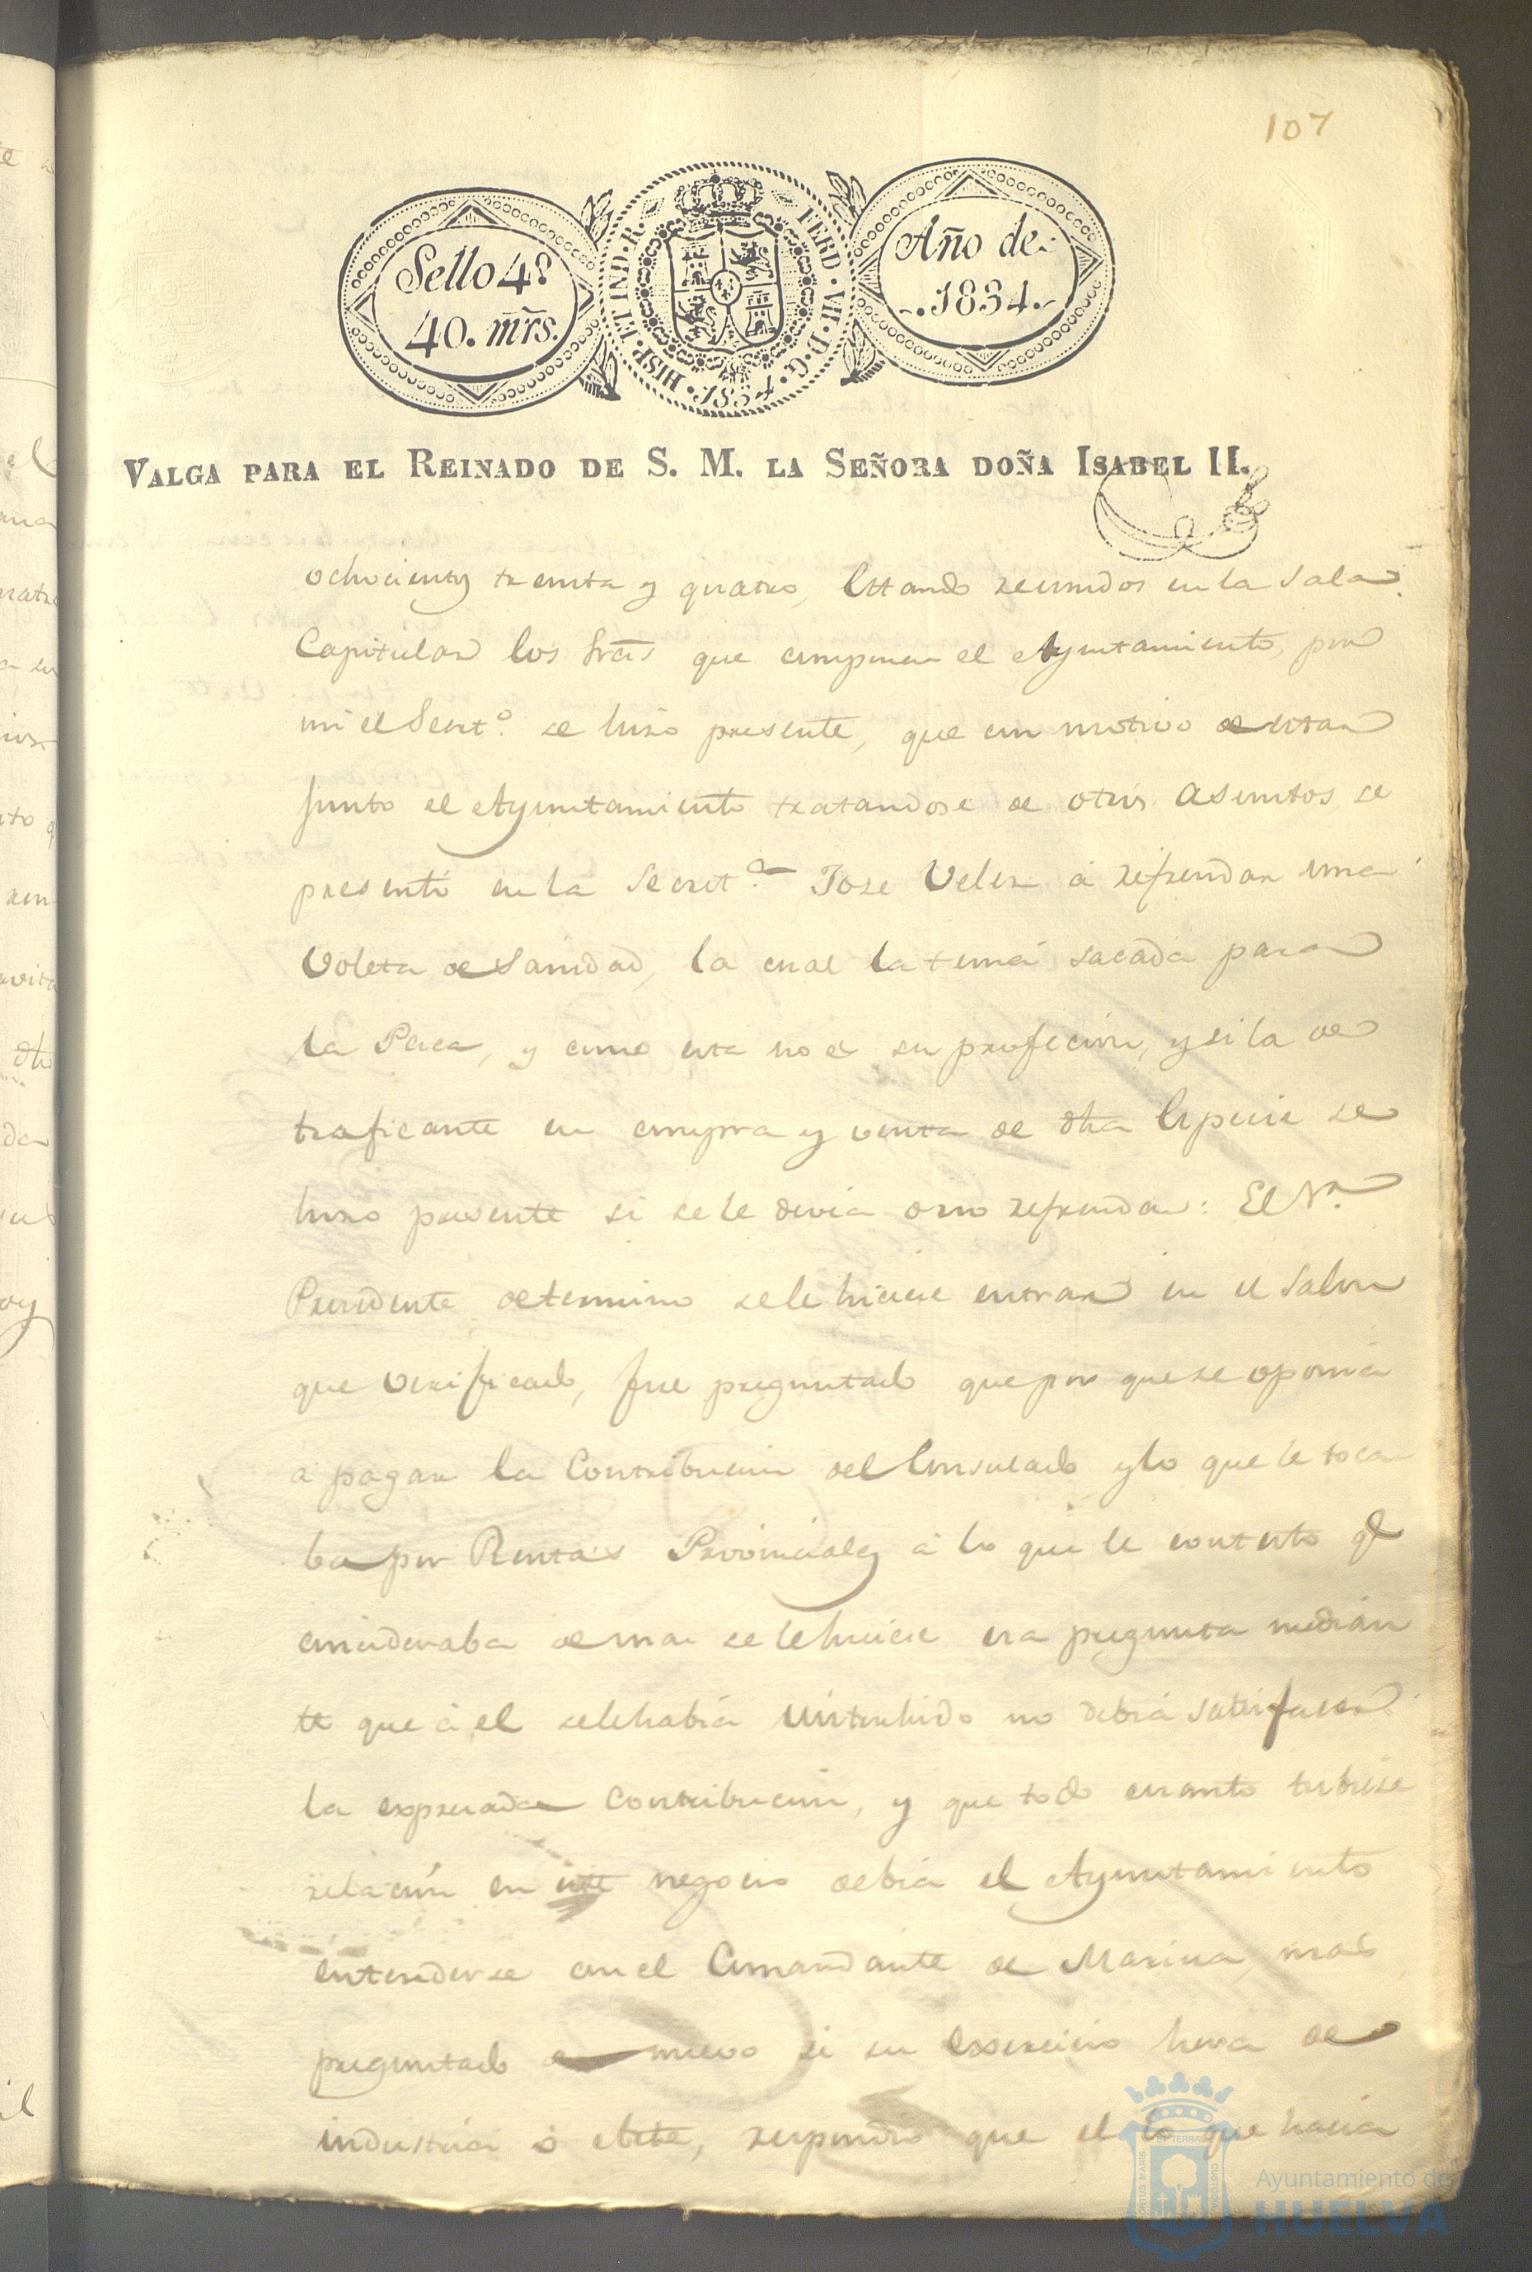 107
Sello 4º
40. mrs.
HISP. ET IND. R. FERD. VII. D. G. 1834
Año de
1834.
VALGA PARA EL REINADO DE S. M. LA SEÑORA DOÑA ISABEL II.
ochocientos treinta y quatro, Estando reunidos en la Sala
Capitular los Sres que componen el Ayuntamiento, por
mi el Secretº. se hizo presente, que con motivo de estar
Junto el Ayuntamiento tratandose de otros asuntos se
presentó en la Secretª. Jose Velez a refrendar una
Voleta de Sanidad, la cual la tenia sacada para
la Pesca, y como esta no es su profecion, y si la de
traficante en compra y venta de dha Especie se
hizo presente si se le devia o no refrendar: El Sr.
Presidente determino se le hiciese entrar en el Salon
que verificado, fue preguntado que por que se oponia
a pagar la Contribucion del Consulado y lo que le toca
ba por Rentas Provinciales a lo que le contesto q
consideraba de mas se le hiciese esa pregunta median
te que á el se le habia no debia satisfacer
la expresada Contribucion, y que todo cuanto tubiese
relacion en este negocio debia el Ayuntamiento
entenderse con el Comandante de Marina, mas
preguntado de nuevo si su exercicio hera de
industria ó , respondio que el lo que hacia
Ayuntamiento de
HUELVA